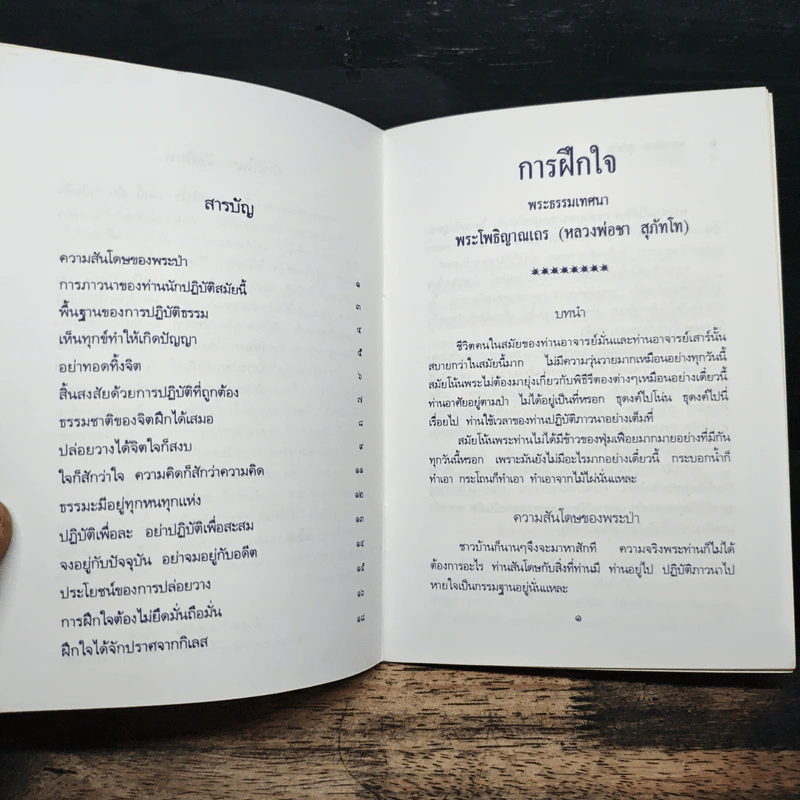 สารบัญ
ความสันโดษของพระป่า ๑
การภาวนาของท่านนักปฏิบัติสมัยนี้ ๓
พื้นฐานของการปฏิบัติธรรม ๔
เห็นทุกข์ทำให้เกิดปัญญา ๕
อย่าทอดทิ้งจิต ๖
สิ้นสงสัยด้วยการปฏิบัติที่ถูกต้อง ๗
ธรรมชาติของจิตฝึกได้เสมอ ๘
ปล่อยวางได้จิตใจก็สงบ ๙
ใจก็สักว่าใจ ความคิดก็สักว่าความคิด ๑๑
ธรรมะมีอยู่ทุกหนทุกแห่ง ๑๒
ปฏิบัติเพื่อละ อย่าปฏิบัติเพื่อสะสม ๑๓
จงอยู่กับปัจจุบัน อย่าจมอยู่กับอดีต ๑๔
ประโยชน์ของการปล่อยวาง ๑๕
การฝึกใจต้องไม่ยึดมั่นถือมั่น ๑๖
ฝึกใจได้จักปราศจากกิเลส ๑๘
การฝึกใจ
พระธรรมเทศนา
พระโพธิญาณเถร (หลวงพ่อชา สุภัทโท)
********
บทนำ
ชีวิตคนในสมัยของท่านอาจารย์มั่นและท่านอาจารย์เสาร์นั้น
สบายกว่าในสมัยนี้มาก ไม่มีความวุ่นวายมากเหมือนอย่างทุกวันนี้
สมัยโน้นพระไม่ต้องมายุ่งเกี่ยวกับพิธีรีตองต่างๆเหมือนอย่างเดี๋ยวนี้
ท่านอาศัยอยู่ตามป่า ไม่ได้อยู่เป็นที่หรอก ธุดงค์ไปโน่น ธุดงค์ไปนี่
เรื่อยไป ท่านใช้เวลาของท่านปฏิบัติภาวนาอย่างเต็มที่
สมัยโน้นพระท่านไม่ได้มีข้าวของฟุ่มเฟือยมากมายอย่างที่มีกัน
ทุกวันนี้หรอก เพราะมันยังไม่มีอะไรมากอย่างเดี๋ยวนี้ กระบอกน้ำก็
ทำเอา กระโถนก็ทำเอา ทำเอาจากไม้ไผ่นั่นแหละ
ความสันโดษของพระป่า
ชาวบ้านก็นานๆจึงจะมาหาสักที ความจริงพระท่านก็ไม่ได้
ต้องการอะไร ท่านสันโดษกับสิ่งที่ท่านมี ท่านอยู่ไป ปฏิบัติภาวนาไป
หายใจเป็นกรรมฐานอยู่นั่นแหละ
๑